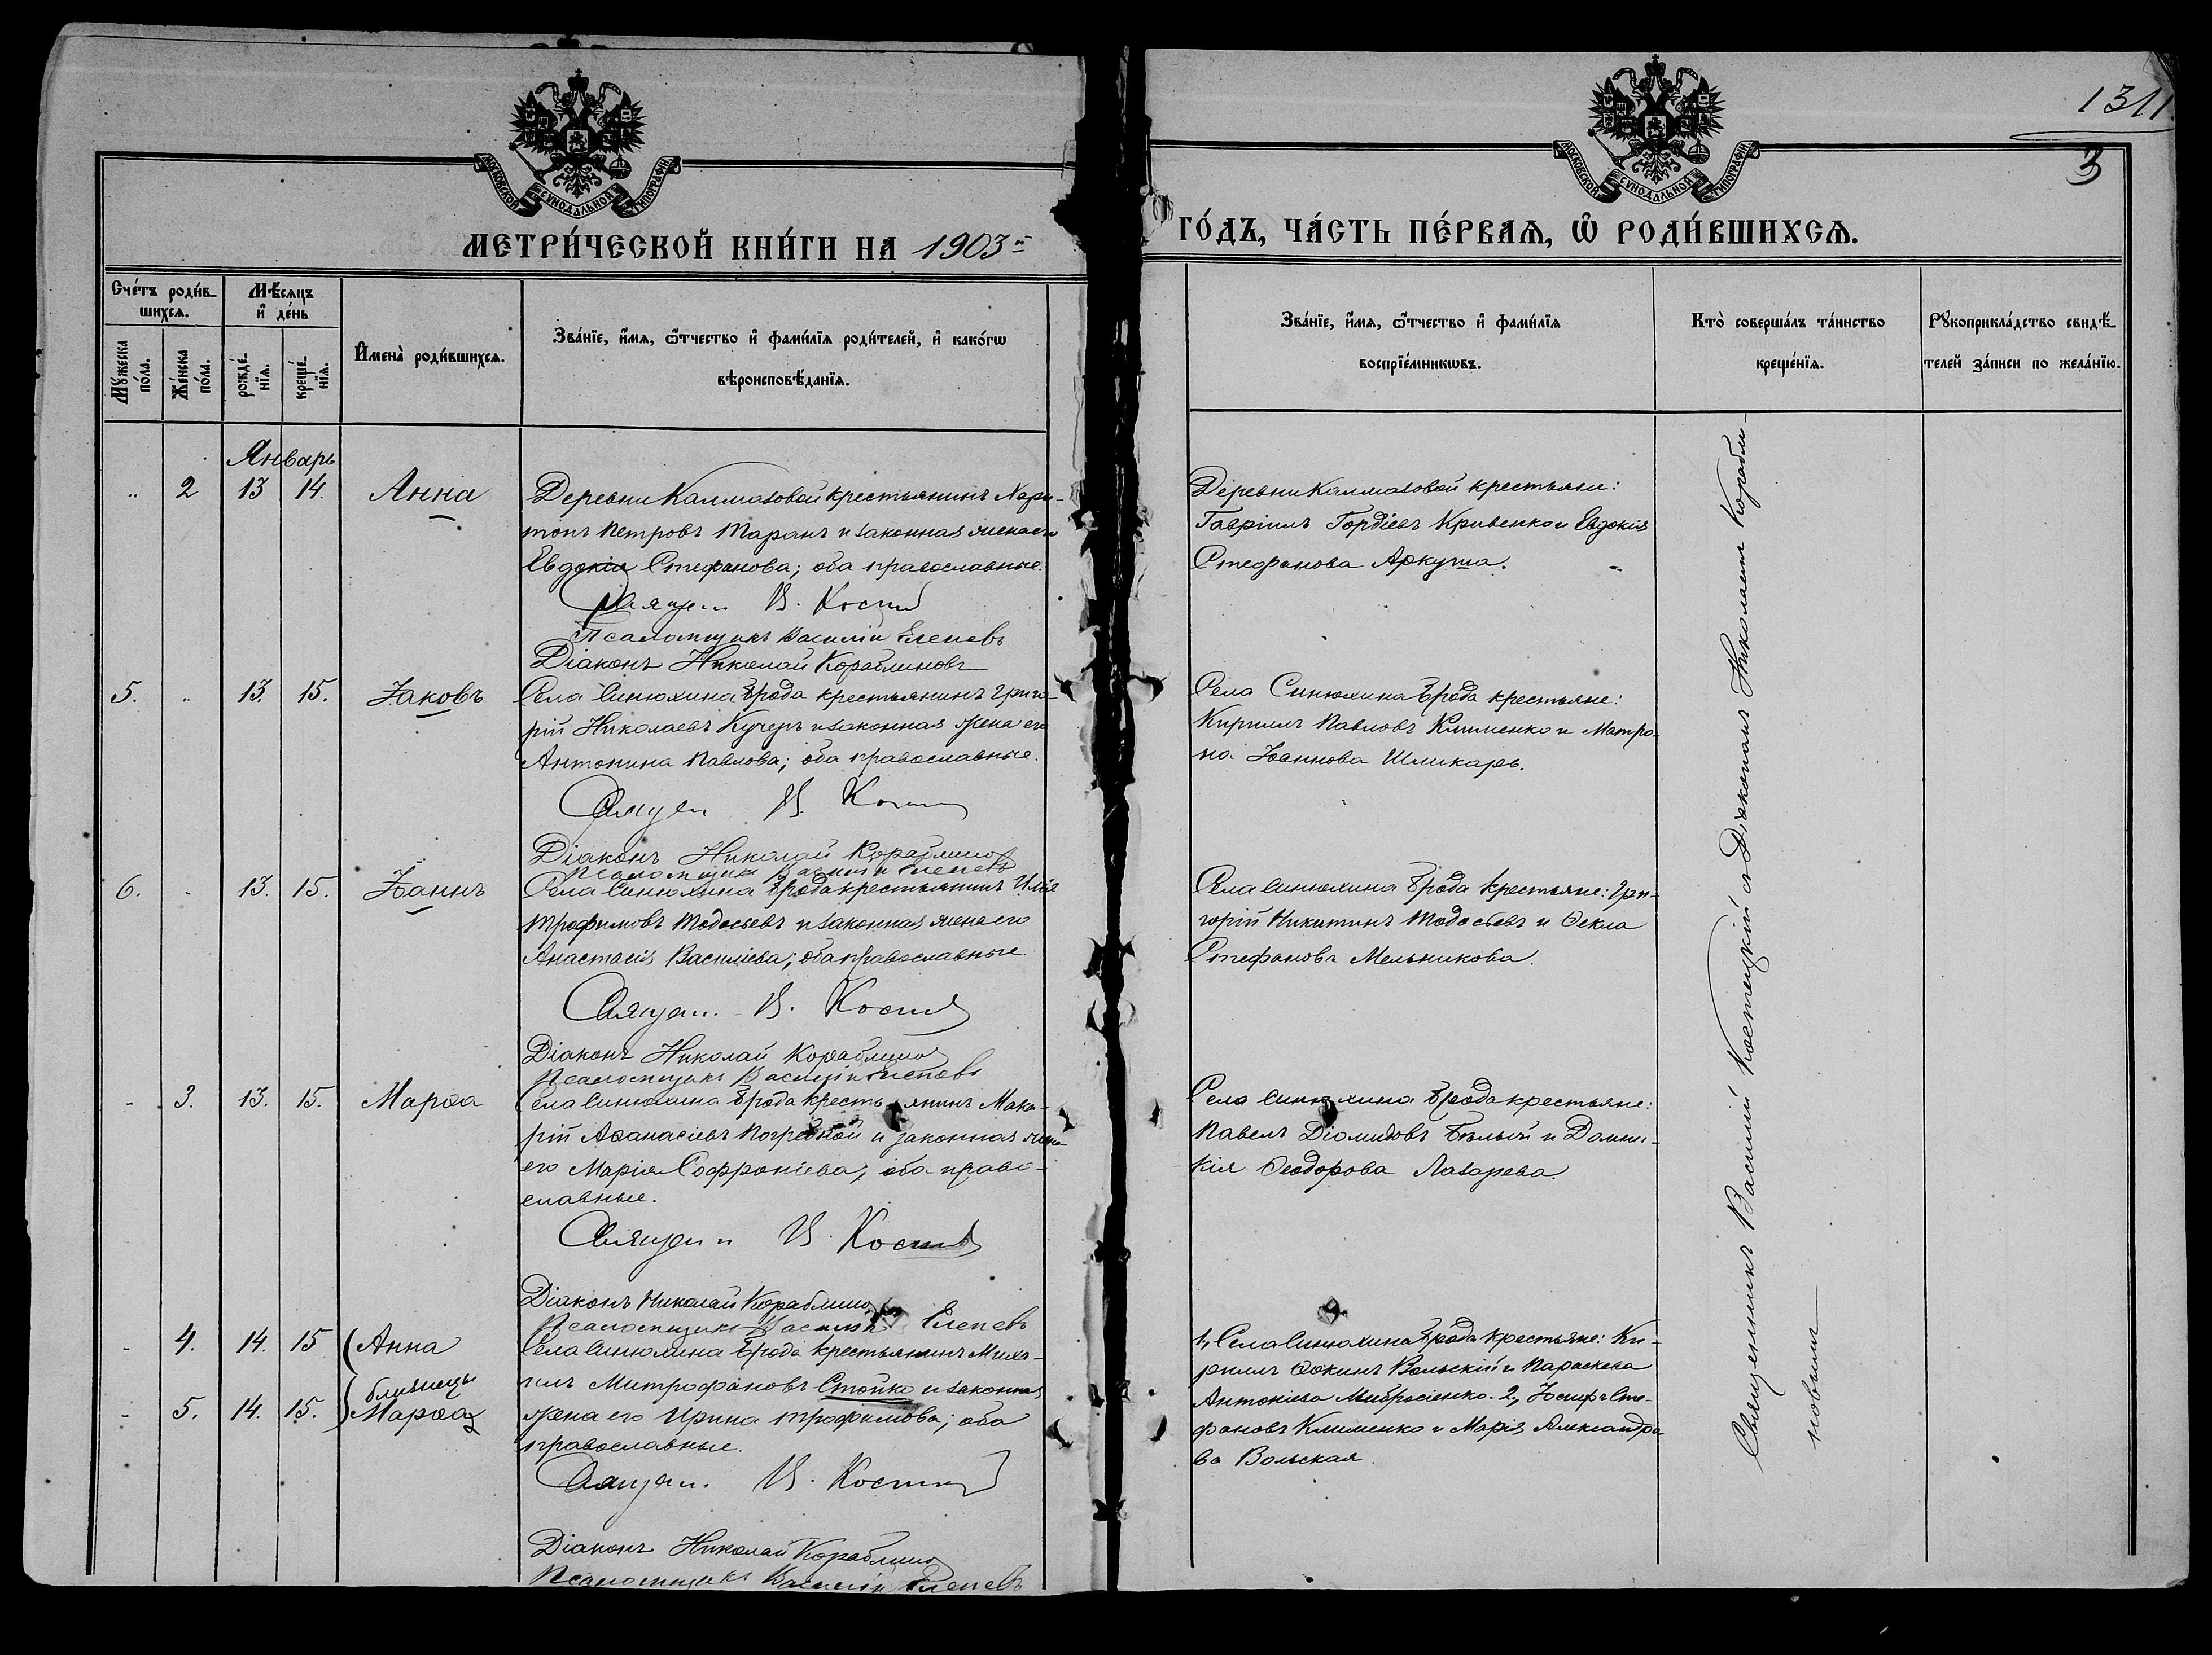 1311
3
МОСКОВСКОЙ СѴНОДАЛЬНОЙ ТИПОГРАФІИ
МОСКОВСКОЙ СѴНОДАЛЬНОЙ ТИПОГРАФІИ
МЕТРИ́ЧЕСКОЙ КНИ́ГИ НА 1903й
ГО́ДЪ, ЧА́СТЬ ПЕ́РВАѦ, Ѡ҆ РОДИ́ВШИХСѦ.
Сче́тъ роди́в-
шихсѧ.
Мꙋ́жеска по́ла.
Же́нска по́ла.
Мѣ́сѧцъ
и҆ де́нь
рожде́-
нїѧ.
креще́-
нїѧ.
И҆мена̀ роди́вшихсѧ.
Зва́нїе, и҆́мѧ, ѻ҆́тчество и҆ фами́лїѧ роди́телей, и҆ како́гѡ
вѣроисповѣ́данїѧ.
Зва́нїе, и҆́мѧ, ѻ҆́тчество и҆ фами́лїѧ
воспрїе́мникѡвъ.
Кто̀ соверша́лъ та́инство
креще́нїѧ.
Рꙋкоприкла́дство свидѣ́-
телей за́писи по жела́нїю.
Январь
" 2 13 14. Анна
Деревни Калмазовой крестьянинъ Хари-
тонъ Петровъ Таранъ и законная жена его
Евдокія Стефанова; оба православные.
Священ. В. Кост
Псаломщикъ Василій Елепевъ
Діаконъ Николай Кораблиновъ
Деревни Калмазовой крестьяне:
Гавріилъ Гордіевъ Кривенко и Евдокія
Стефанова Аркуша.
5. " 13. 15. Іаковъ
Села Синюхина Брода крестьянинъ Григо-
рій Николаевъ Кучеръ и законная жена его
Антонина Павлова; оба православные.
Священ В. Кост
Діаконъ Николай Кораблинов
Псаломщикъ Василій Елепевъ
Села Синюхина Брода крестьяне:
Кириллъ Павловъ Клименко и Матро-
на Іоаннова Шликарь.
6. 13. 15. Іоаннъ
Села Синюхина Брода крестьянинъ Илія
Трофимовъ Тодосьевъ и законная жена его
Анастасія Василіева; оба православные.
Священ. В. Кост
Діаконъ Николай Кораблинов
Псаломщикъ Василій Елепевъ
Села Синюхина Брода крестьяне: Гри-
горій Никитинъ Тодосьевъ и Ѳекла
Стефанова Мельникова.
- 3. 13. 15. Марѳа
Села Синюхина Брода крестьянинъ Мака-
рій Аѳанасіевъ Погребной и законная жена
его Марія Софроніева; оба право-
славные.
Священ В. Кост
Діаконъ Николай Кораблинов
Псаломщикъ Василій Елепевъ
Села Синюхина Брода крестьяне:
Павелъ Діомидовъ Бѣлый и Домни-
кія Ѳеодорова Лазарева.
- 4. 14. 15 Анна
близнецы
- 5. 14. 15. Марѳа
Села Синюхина Брода крестьянинъ Миха-
илъ Митрофановъ Стойко и законная
жена его Ирина Трофимова; оба
православные.
Священ. В. Кост
Діаконъ Николай Кораблинов
Псаломщикъ Василій Елепевъ
1, Села Синюхина Брода крестьяне: Ки-
риллъ Ѳокинъ Вольскій и Параскева
Антоніева 2, Іосифъ Сте-
фановъ Клименко и Марія Александро-
ва Вольская.
Священникъ Василій Костецкій съ Діакономъ Николаемъ Корабли-
новымъ